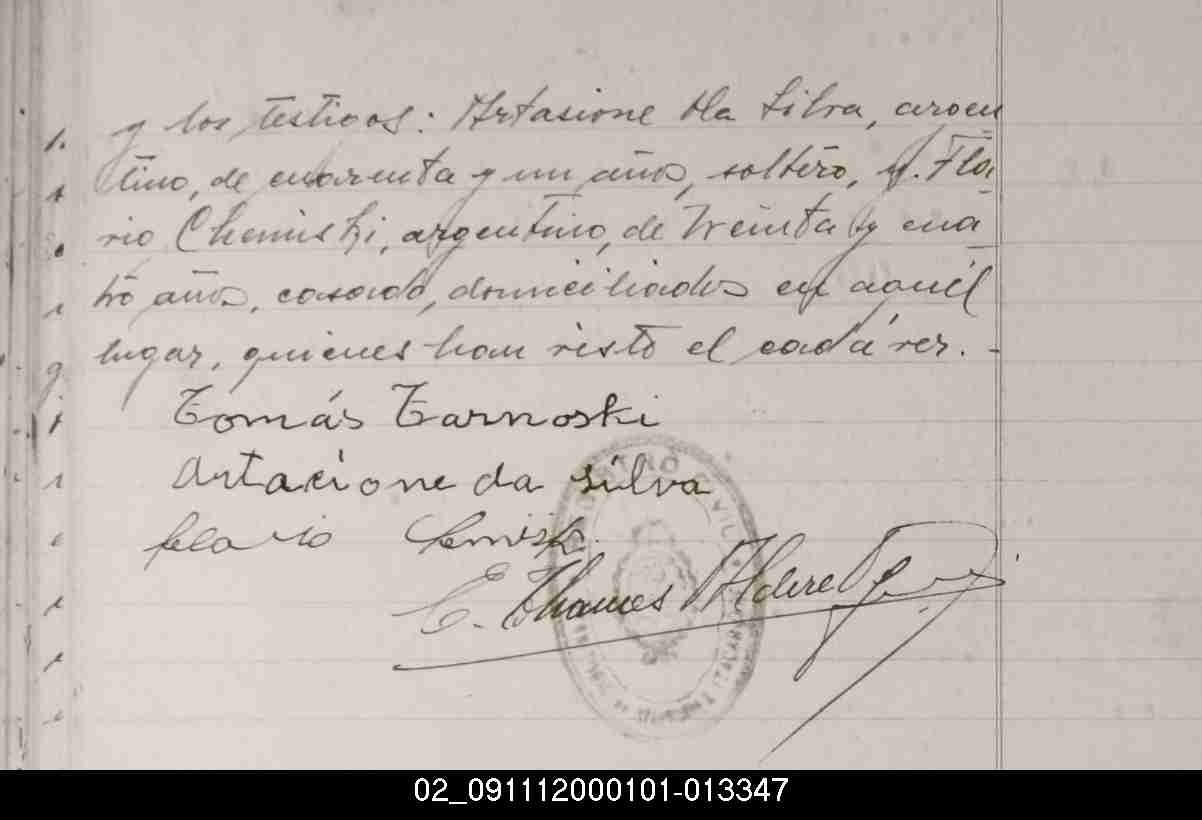 y los testigos: Artasione Da Silva, argen
tino, de cuarenta y un años, soltero, y Flo
rio Chemiski, argentino, de treinta y cua
tro años, casado, domiciliados en aquél
lugar, quienes han visto el cadáver. -
Tomás Tarnoski
artacione da silva
E. Thames Alderete
REGISTRO CIVIL
02_091112000101-013347